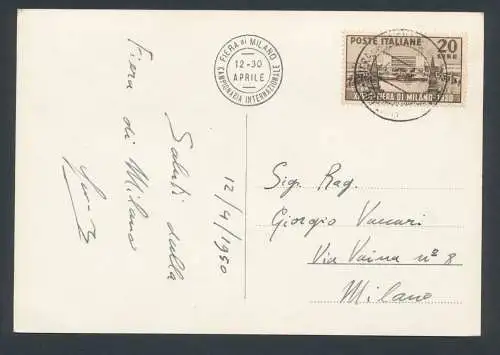 Saluti dalla
Fiera di Milano
12/4/1950
FIERA DI MILANO
CAMPIONARIA INTERNAZIONALE
12-30
APRILE
POSTE ITALIANE
20
LIRE
FIERA DI MILANO 1950
Sig. Rag.
Giorgio Vaccari
Via Vaina nº 8
Milano